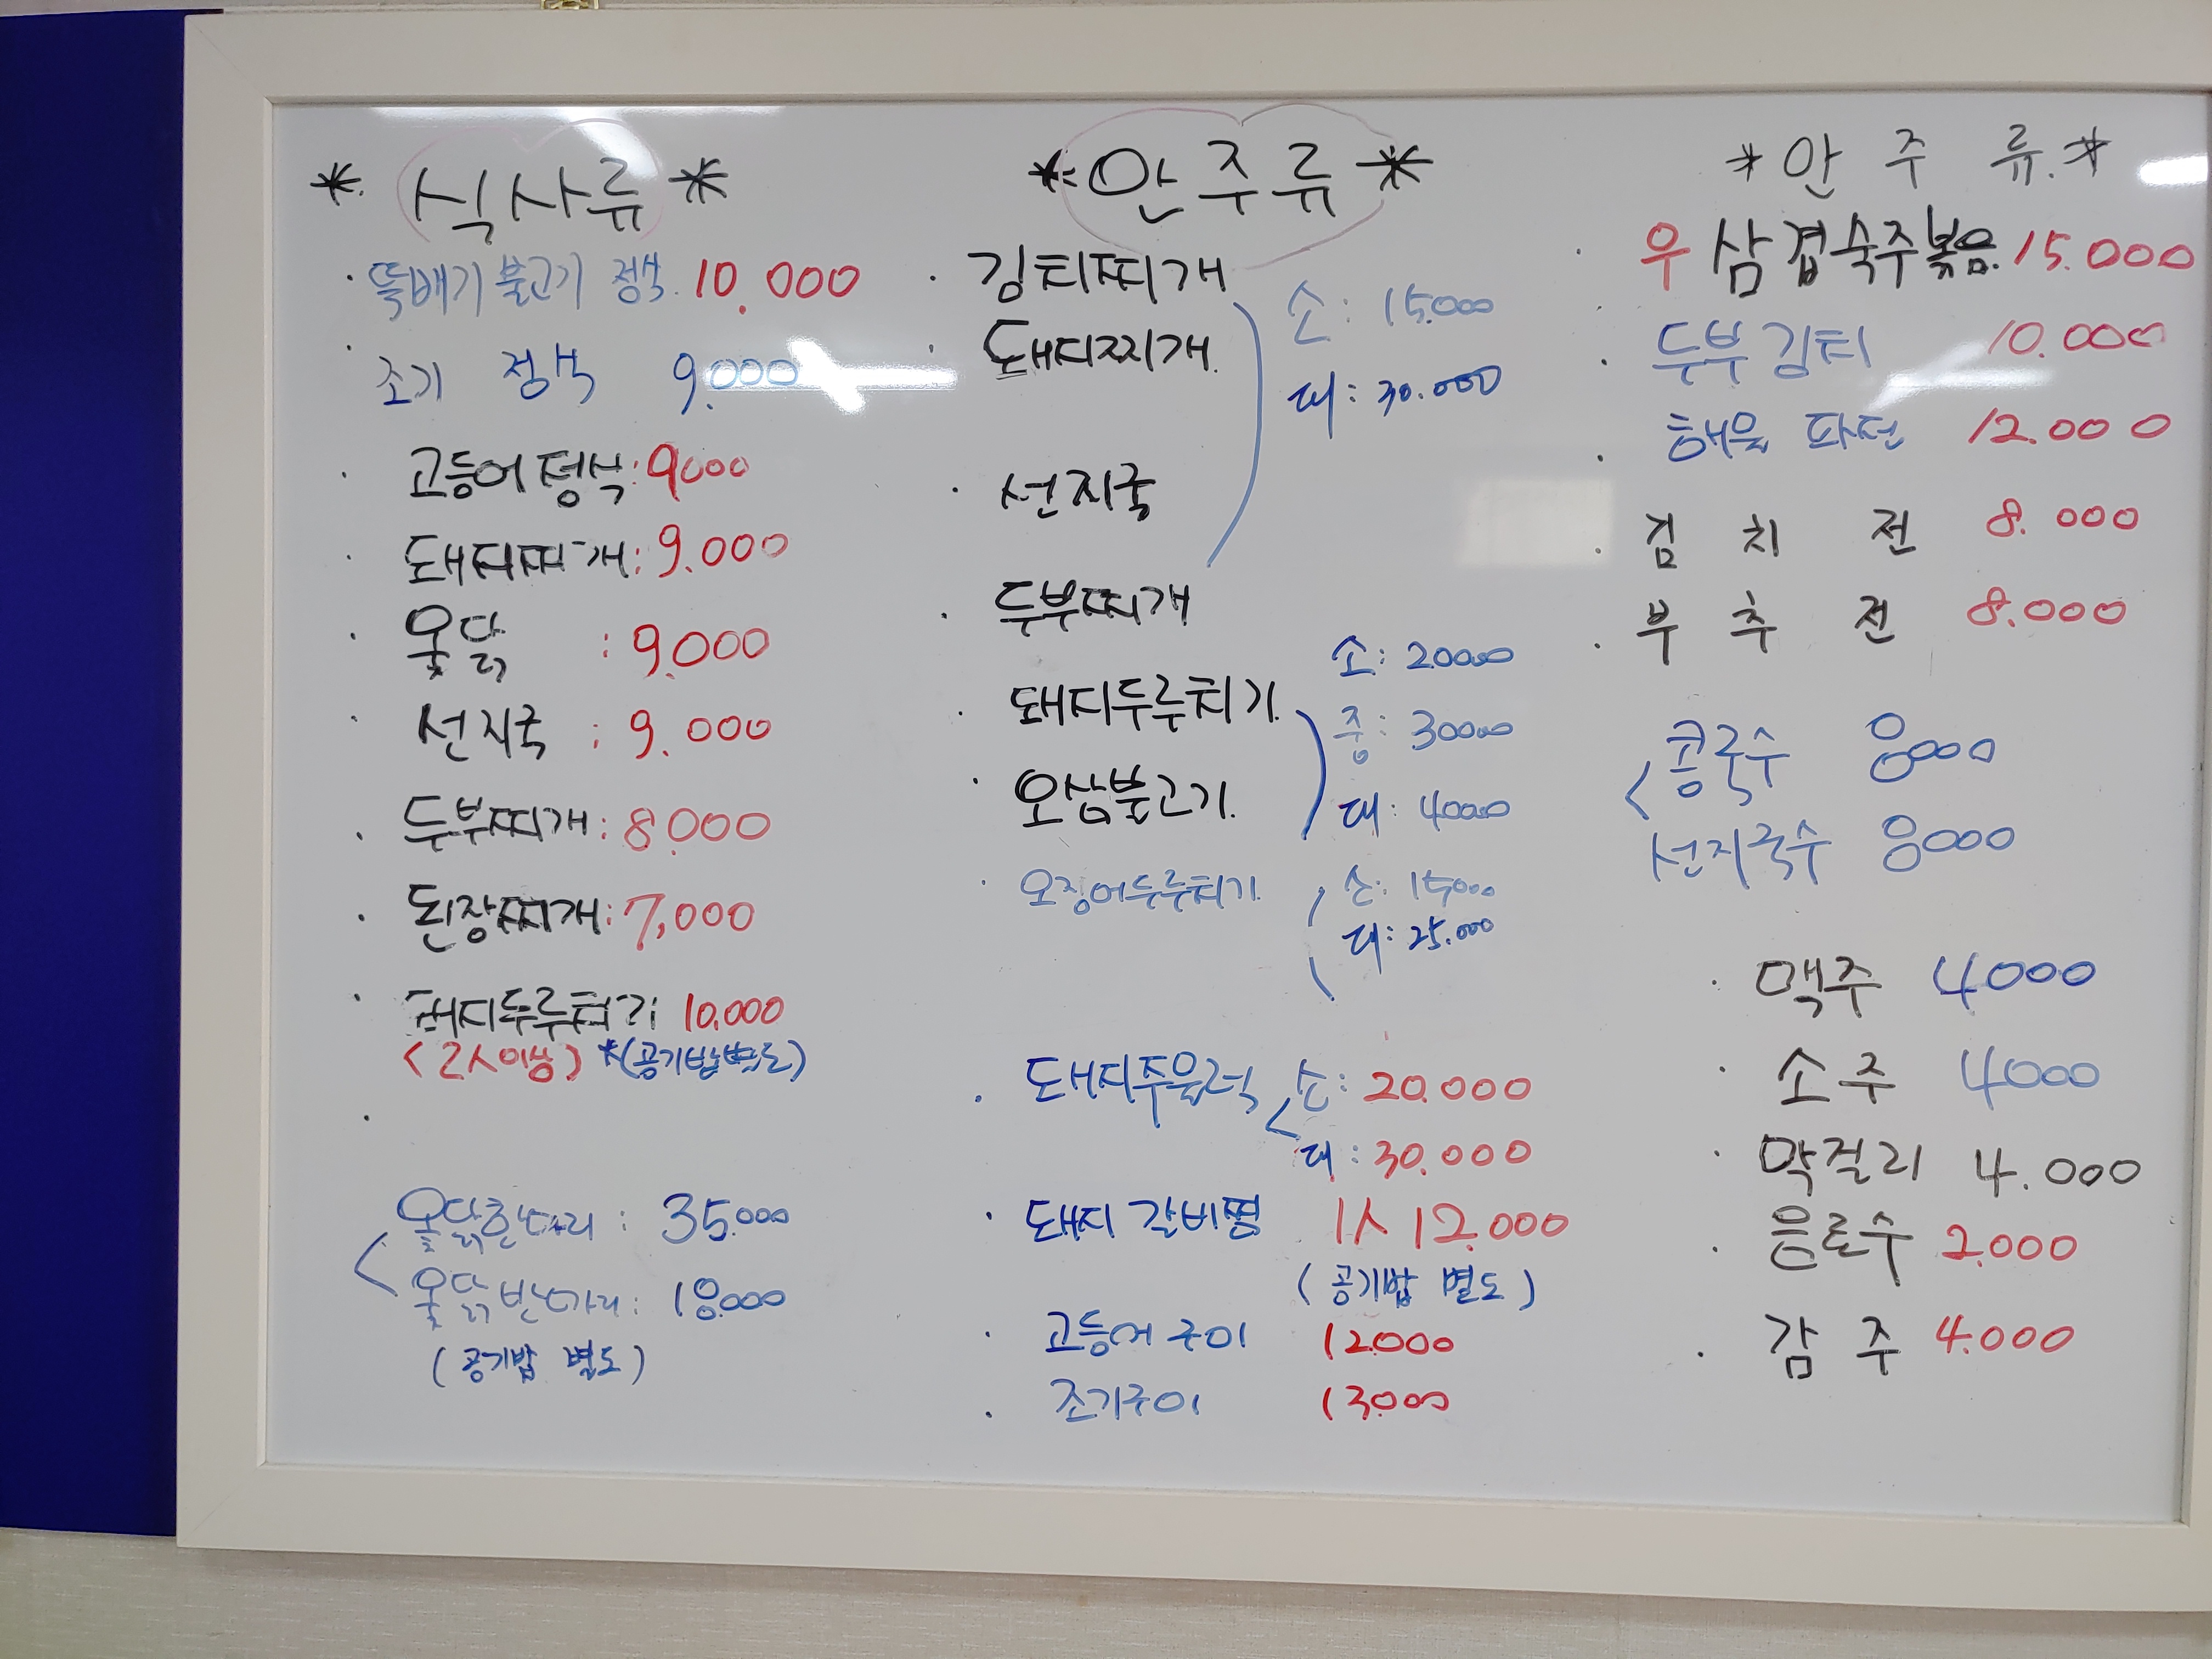 * 식사류 *
· 뚝배기 불고기 정식 10.000
· 조기 정식 9.000
· 고등어정식: 9000
· 돼지찌개: 9.000
· 옻닭 : 9.000
· 선지국 : 9.000
· 두부찌개: 8.000
· 된장찌개: 7,000
· 돼지두루치기 10.000
<2人이상> *(공기밥별도)
·
옻닭한마리 : 35.000
옻닭반마리 : 18.000
(공기밥 별도)
* 안주류 *
· 김치찌개
· 돼지찌개
소: 15.000
대: 30.000
· 선지국
· 두부찌개
· 돼지두루치기
· 오삼불고기
소: 20000
중: 30000
대: 40000
· 오징어두루치기
소: 15000
대: 25.000
· 돼지주물럭 소: 20.000
대: 30.000
· 돼지 갈비찜 1人 12.000
(공기밥 별도)
· 고등어 구이 12000
· 조기구이 13000
* 안 주 류. *
· 우삼겹숙주볶음. 15.000
· 두부김치 10.000
· 해물 파전 12.000
· 김 치 전 8.000
· 부 추 전 8.000
콩국수 8000
선지국수 8000
· 맥주 4000
· 소주 4000
· 막걸리 4.000
· 음료수 2.000
· 감 주 4.000